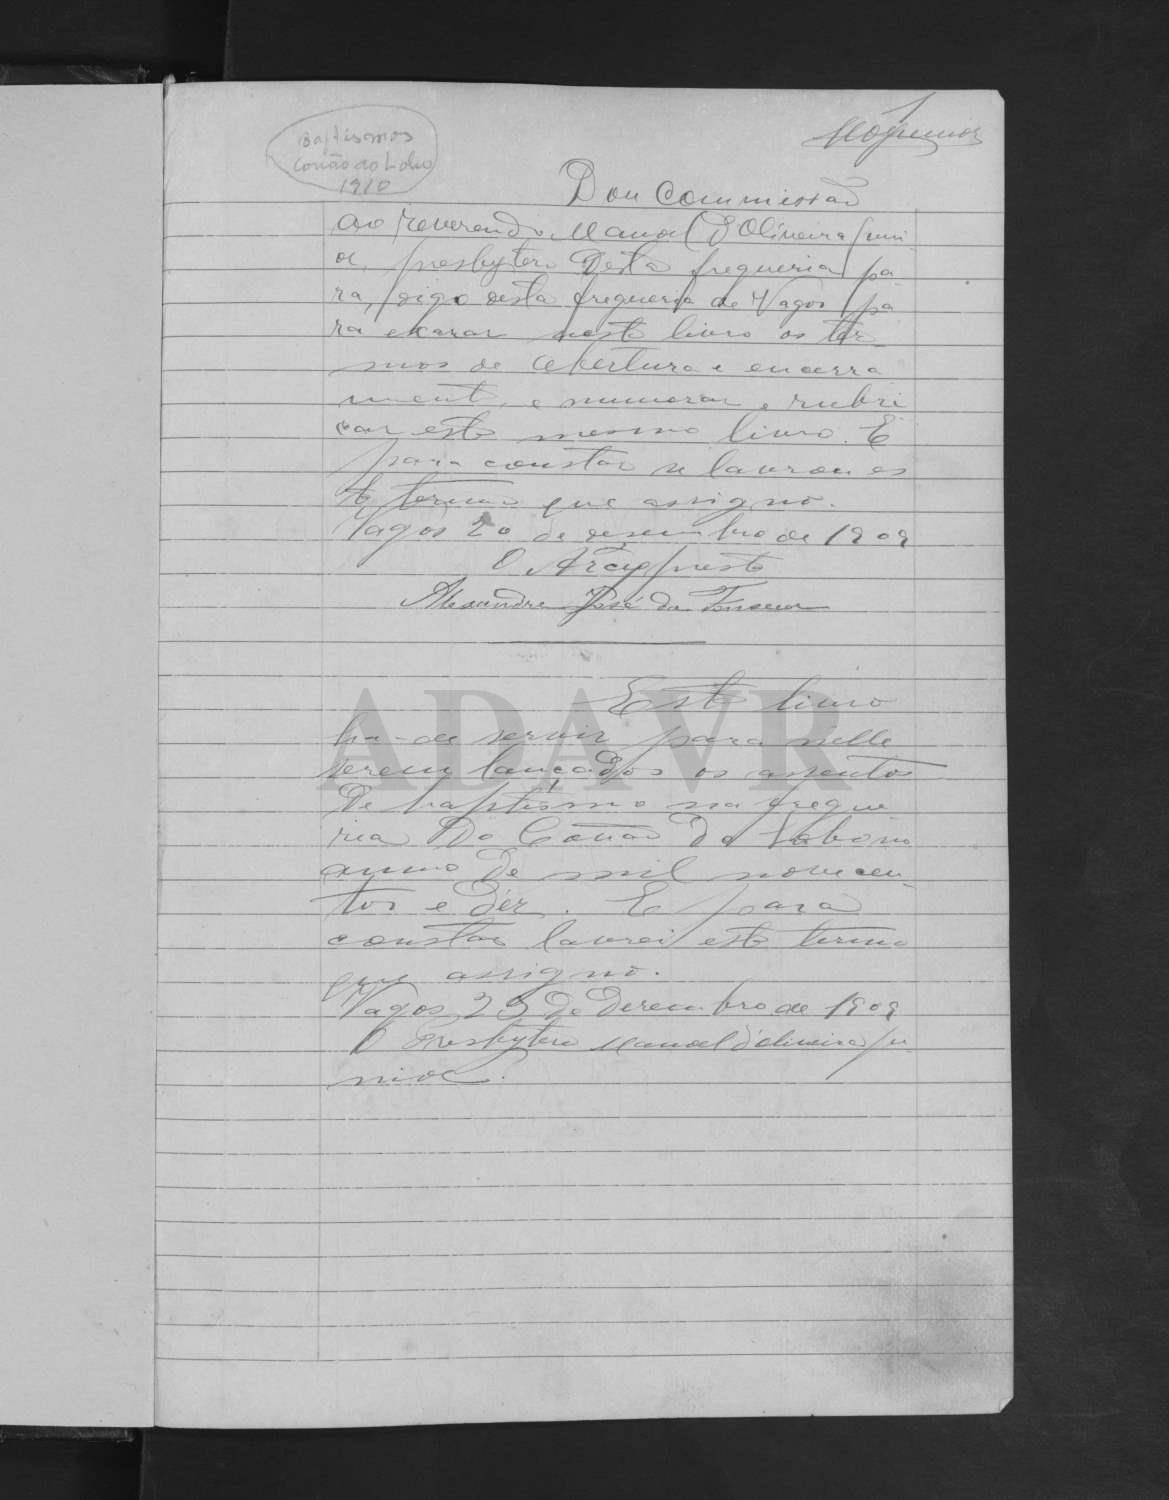 Baptismos
Covão do Lobo
1910
1
MOJunior
Dou Commissão
ao reverendo Manoel d'Oliveira Juni-
or, presbytero desta freguezia pa-
ra, digo desta freguezia de Vagos pa
ra exarar neste livro os ter-
mos de abertura e encerra
mento, e numerar e rubri
car este mesmo livro. E
para constar se lavrou es
te termo que assigno.
Vagos 20 de dezembro de 1909
O Arcypreste
Alexandre José da Fonseca
ADAVR
Este livro
ha-de servir para nelle
serem lançados os assentos
de baptismo na fregue
zia do Covão do Lobo no
anno de mil novecen-
tos e dez. E para
constar lavrei este termo
que assigno.
Vagos 23 de Dezembro de 1909
O Presbytero Manoel d'Oliveira Ju-
nior.